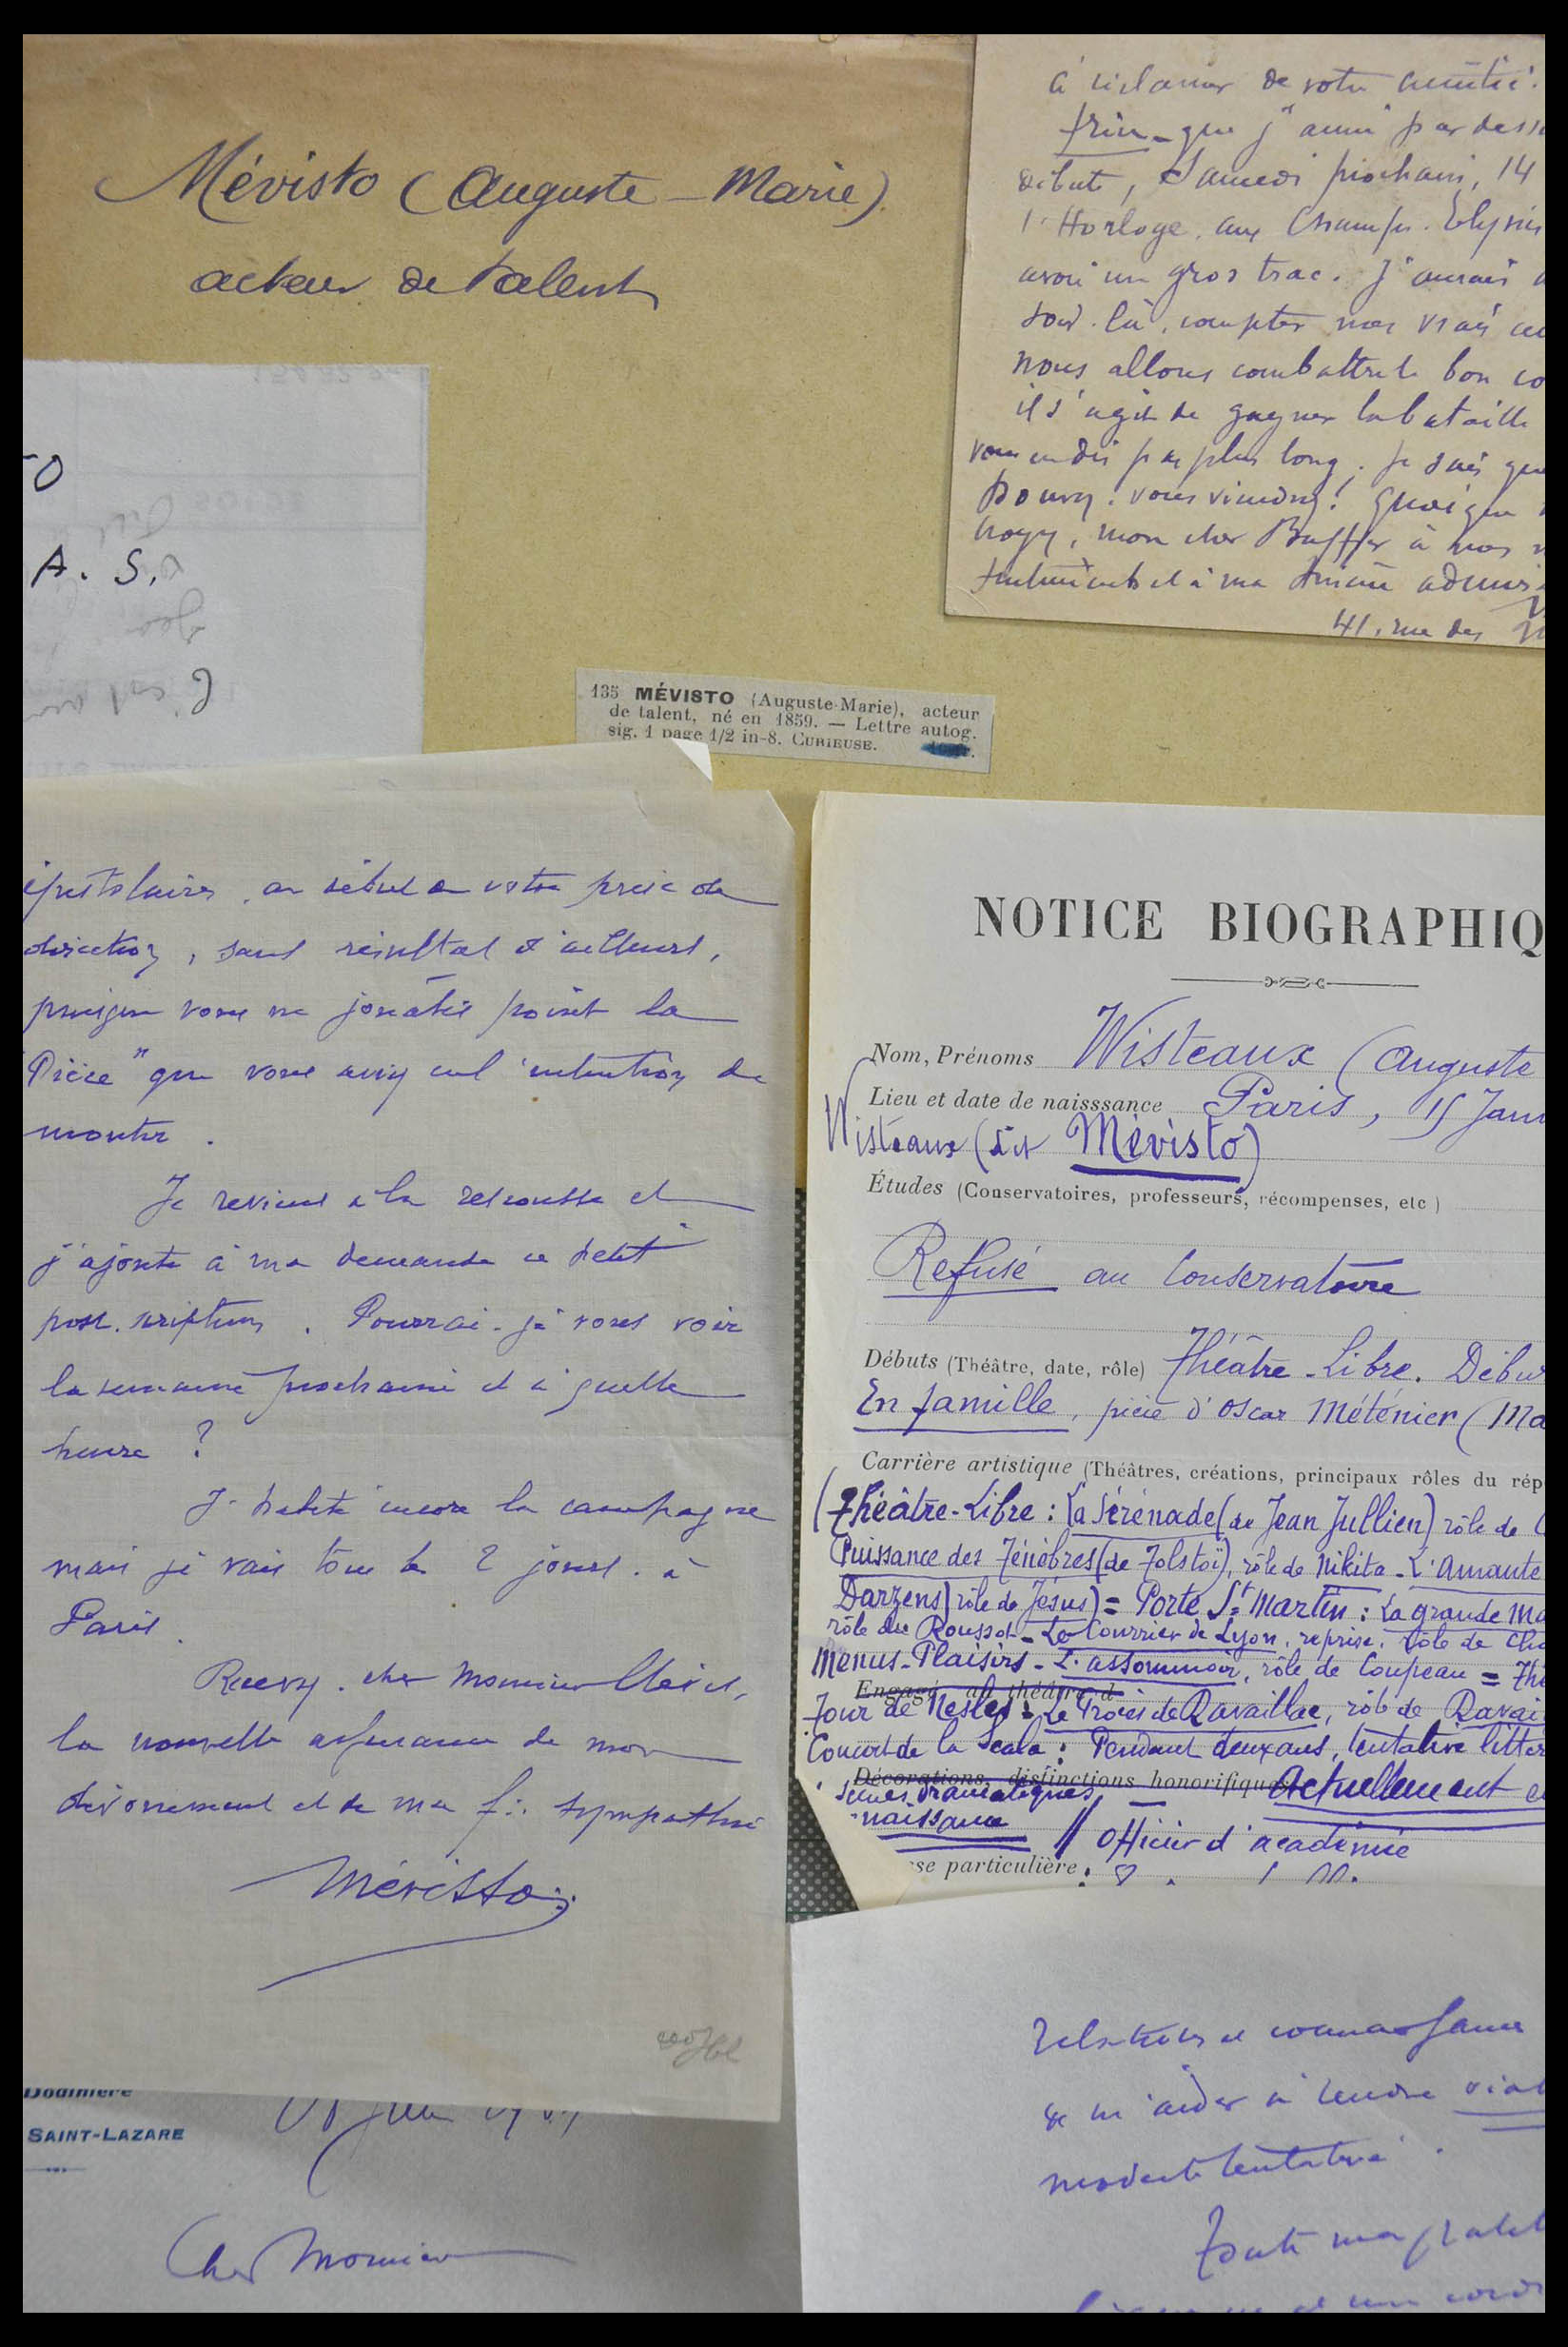 Mévisto (Auguste-Marie)
acteur de talent
à réclamer de votre amitié.
frin - que j'aime par dess
débute, Samedi prochain, 14
l'Horloge aux Champs-Elysées
avoir un gros trac. J'aurais
là, compter mes vrais
nous allons combattre le bon
il s'agit de gagner la bataille
vous en dis pas plus long. Je sais que
vous viendrez! Quoique
mon cher Buffer à mes
sentiments et à ma sincère
41, rue des
O
A. S.
135 MÉVISTO (Auguste-Marie), acteur
de talent, né en 1859. — Lettre autog.
sig. 1 page 1/2 in-8. CURIEUSE.
épistolaires, au début de votre prise de
direction, sans résultat d'ailleurs,
puisque vous ne jouâtes point la
"Pièce" que vous aviez eu l'intention de
monter.
Je reviens à la rescousse et
j'ajoute à ma demande ce petit
post-scriptum. Pourrai-je vous voir
la semaine prochaine et à quelle
heure ?
J'habite encore la campagne
mais je vais tous les 2 jours à
Paris.
Recevez, cher Monsieur
la nouvelle assurance de mon
dévouement et de ma sympathie
Mévisto
NOTICE BIOGRAPHIQ
Nom, Prénoms Wisteaux (Auguste
Lieu et date de naisssance Paris, 15 Jan
Wisteaux (dit Mévisto)
Études (Conservatoires, professeurs, récompenses, etc)
Refusé au Conservatoire
Débuts (Théâtre, date, rôle) Théâtre-Libre. Débu
En famille, pièce d'Oscar Méténier (Ma
Carrière artistique (Théâtres, créations, principaux rôles du rép
(Théâtre-Libre : La Sérénade (de Jean Jullien) rôle de
Puissance des Ténèbres (de Tolstoï), rôle de Nikita - L'Amante
Darzens) rôle de Jésus) = Porte St Martin : La grande Ma
rôle du Rousset - Le Courrier de Lyon, reprise, rôle de Cho
Menus-Plaisirs - L'assommoir, rôle de Coupeau = Thé
Engagé au théâtre d
Tour de Nesles : Le Procès de Ravaillac, rôle de Ravai
Concert de la Scala : Pendant deux ans, tentative littér
Décorations, distinctions honorifiques Actuellement
Scènes dramatiques
naissance
// Officier d'académie
sse particulière :
SAINT-LAZARE
Cher Monsieur
Relations et connaissances
de m'aider à rendre viab
modeste tentative.
Toute ma gratit